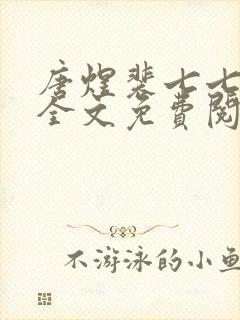 唐煌裴七七
全文免费阅
不游泳的小鱼